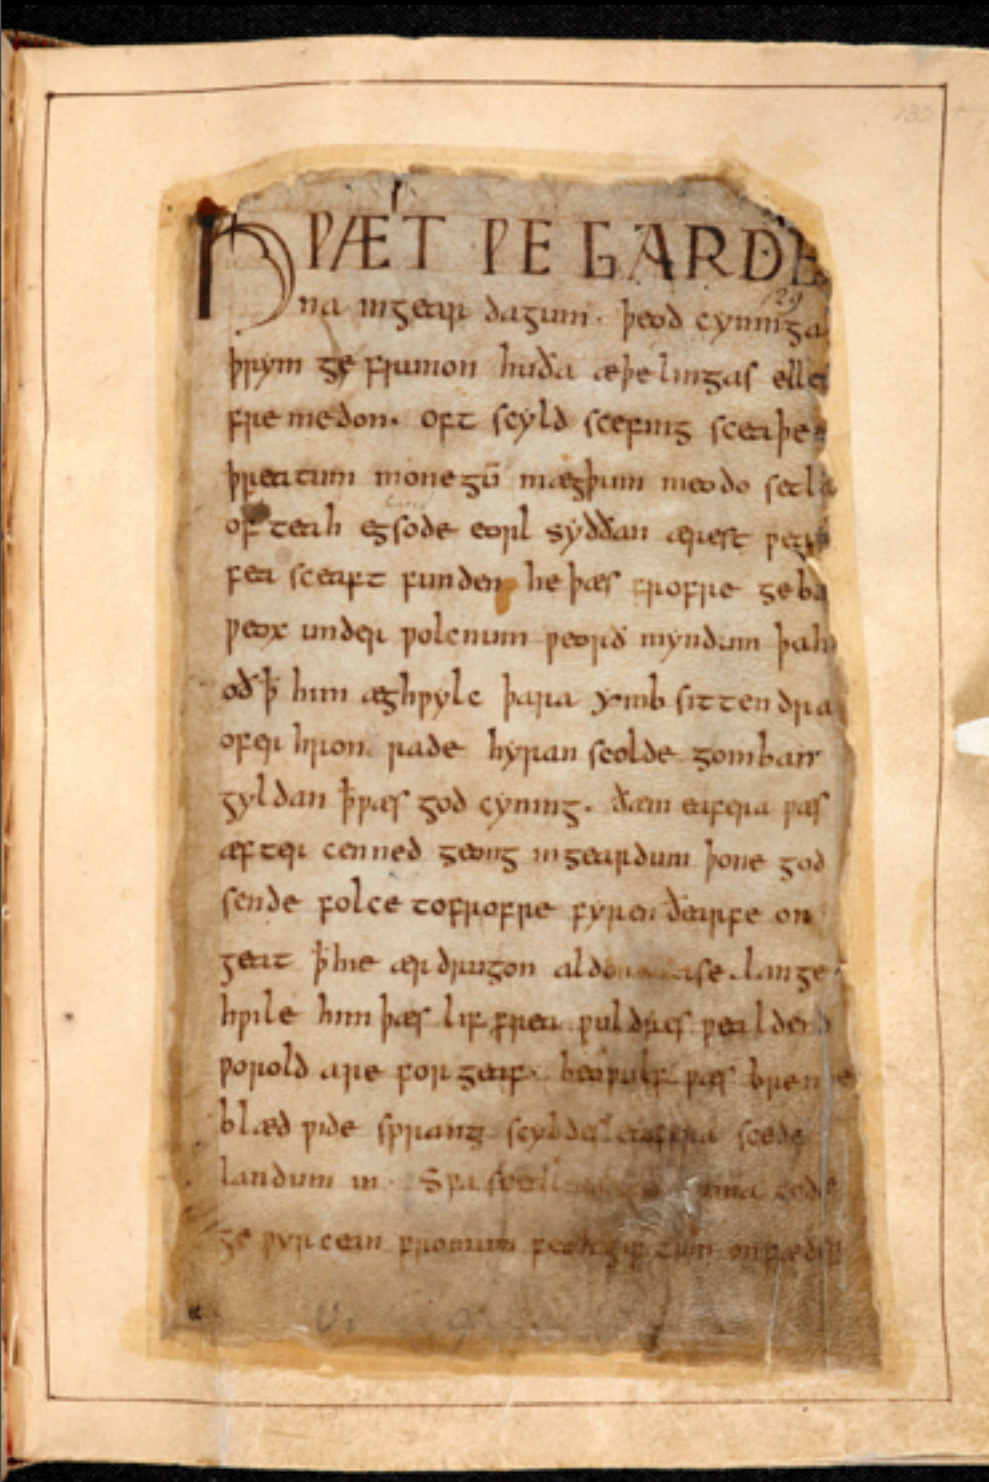 HǷÆT ǷE GARDE
na ingear dagum. þeod cyninga
þrym ge frunon huða æþelingas elle
fre medon. oft scyld scefing sceaþe
þreatum monegū mægþum meodo setla
of teah egsode eorl syððan ærest ƿear
fea sceaft funden he þæs frofre geba
ƿeox under ƿolcnum ƿeorð myndum þah
oð ꝥ him æghƿylc þara ymb sittendra
ofer hron rade hyran scolde gomban
gyldan ꝥ ƿæs god cyning. ðæm eafera ƿæs
æfter cenned geong in geardum þone god
sende folce tofrofre fyren ðearfe on
geat ꝥ hie ær drugon aldor ase. lange
hƿile him þæs lif frea ƿuldres ƿealdend
ƿorold are for geaf. beoƿulf ƿæs breme
blæd ƿide sprang scyldes eafera scede
landum in. Sƿa sceal guma gode
ge ƿyrcean fromum feoh giftum on fæder